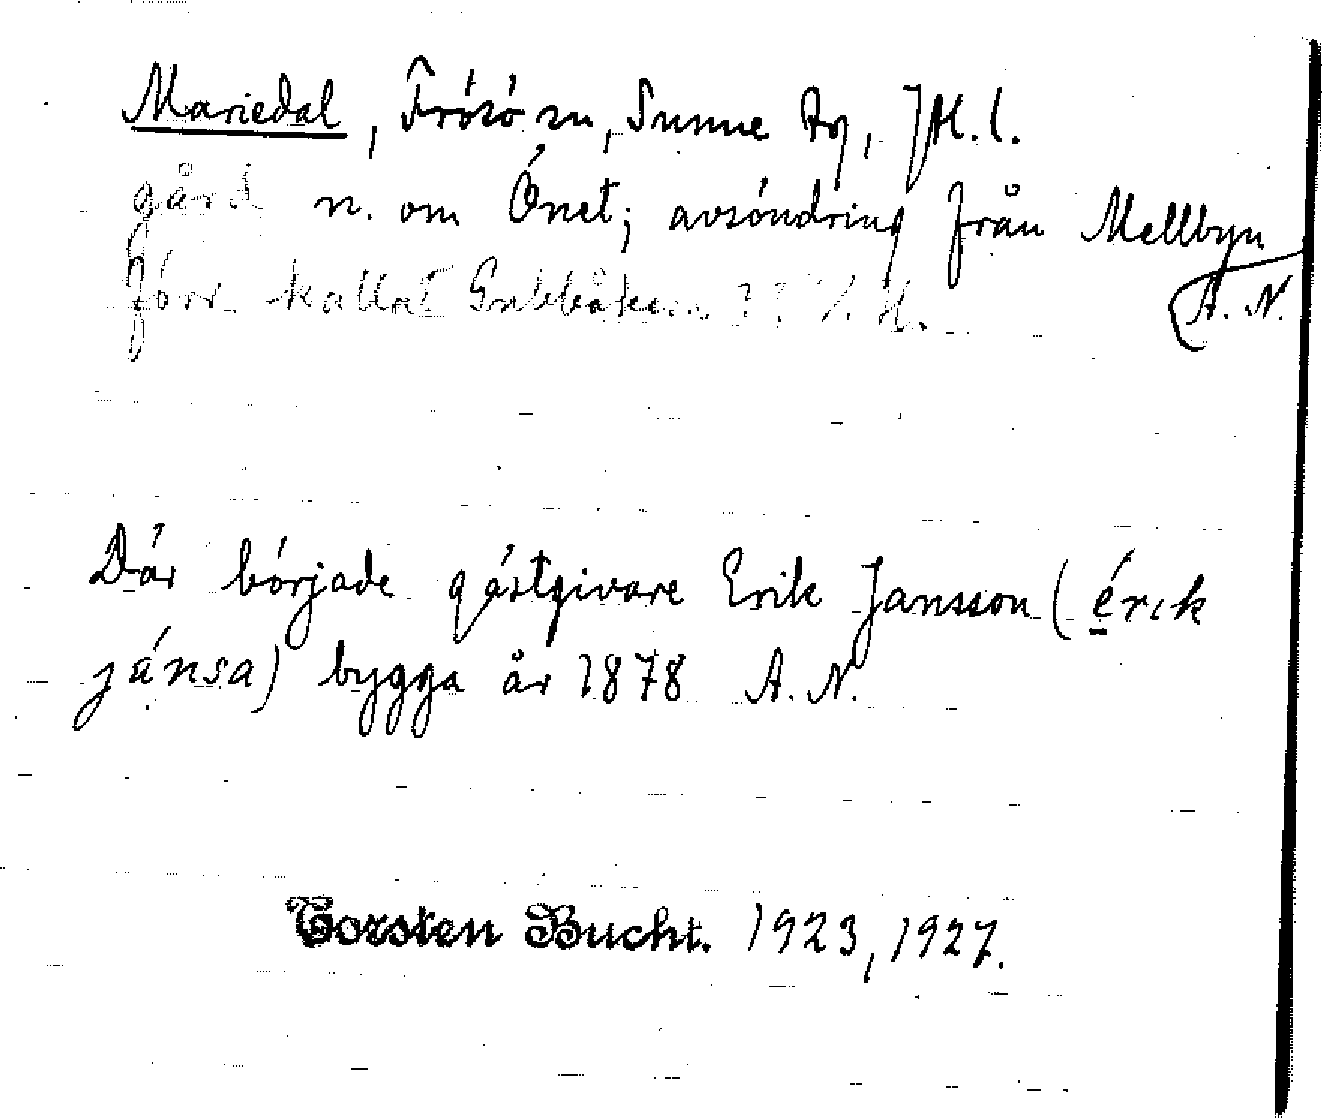 Mariedal, Frösö sn, Sunne tg, Jtl. l.
gård n. om Önet; avsöndring från Mellbyn
A. N.
förr kallat Gubbåkern
Där började gästgivare Erik Jansson (érik
jánsa) bygga år 1878 A. N.
Torsten Bucht. 1923, 1927.